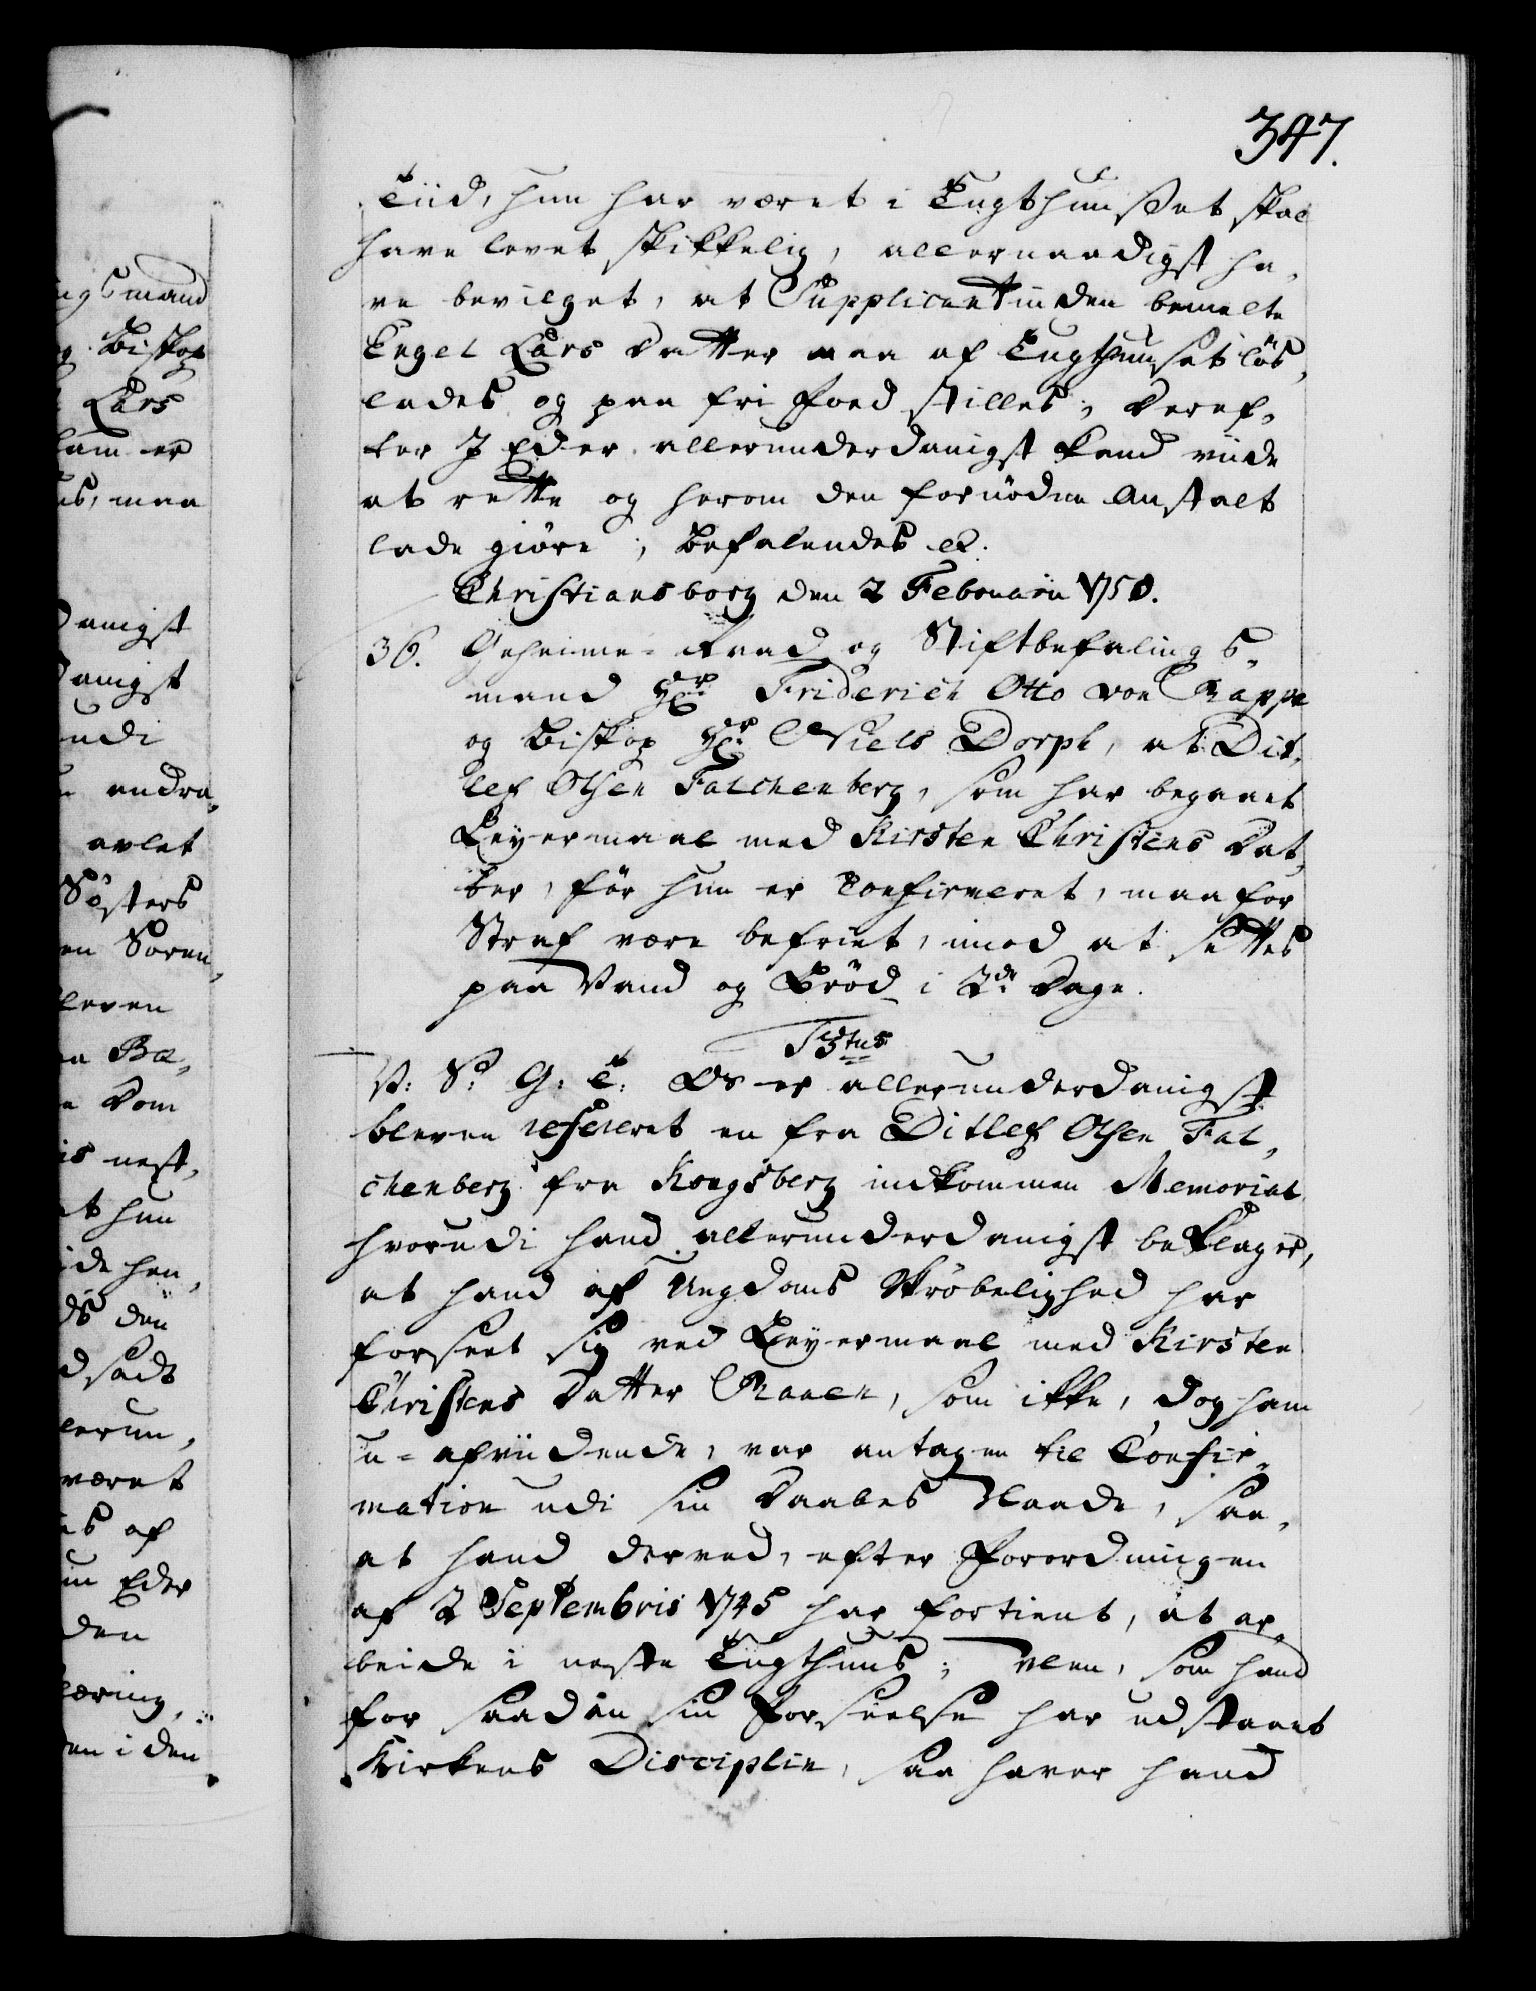 347.
Tiid, hun har været i Tugthuuset skal
have levet skikkelig, allernaadigst ha,
ve bevilget, at Supplicantinden bemelte
Engel Lars Datter maa af Tugthuuset løs,
lades og paa fri Foed stilles; Deref,
ter I Eder allerunderdanigst kand viide
at rette og herom den fornödne Anstalt
lade giöre; Befalendes etc.
Christiansborg den 2 Februarii 1750.
36. Geheime-Raad og Stiftbefalings,
mand Hr. Friderich Otto von Rappe
og Biskop Hr. Niels Dorph, at Dit,
lef Olsen Falchenberg, som har begaaet
Leyermaal med Kirsten Christens Dat,
ter, för hun er Confirmeret, maa for
Straf være befriet, imod at settes
paa Vand og Bröd i 2de Dage.
F5tus
V: S: G: T: Os er allerunderdanigst
bleven refereret en fra Ditlef Olsen Fal,
chenberg fra Kongsberg indkommen Memorial
hvorudi hand allerunderdanigst beklager,
at hand af Ungdoms Skröbelighed har
forseet sig ved Leyermaal med Kirsten
Christens Datter Raaen, som ikke, dog ham
u-afviidende, var antagen til Confir,
mation udi sin Daabes Naade, saa,
at hand derved, efter Forordningen
af 2 Septembris 1745 har fortient, at ar,
beide i neste Tugthuus; Men, som hand
for saadan sin Forseelse har udstaaet
Kirkens Disciplin, saa haver hand
ngsmand
og Biskop
Lars
ham er
us, maa
danigst
danigst
udi
andra,
avlet
Søsters
en Søren,
bleven
Ba,
Dom
is nest,
at hun
ide hen,
ds den
dsadt
lerun,
været
es af
un Eder
den
læring,
en i den